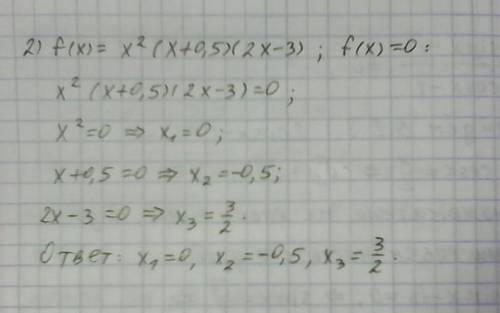 2) f(x) = x² (x+0,5)(2x-3) ; f(x)=0 :
x² (x+0,5)(2x-3)=0 ;
x²=0 ⇒ x₁=0 ;
x+0,5 =0 ⇒ x₂=-0,5;
2x-3 =0 ⇒ x₃ = 3/2 .
Ответ: x₁=0, x₂=-0,5, x₃= 3/2 .